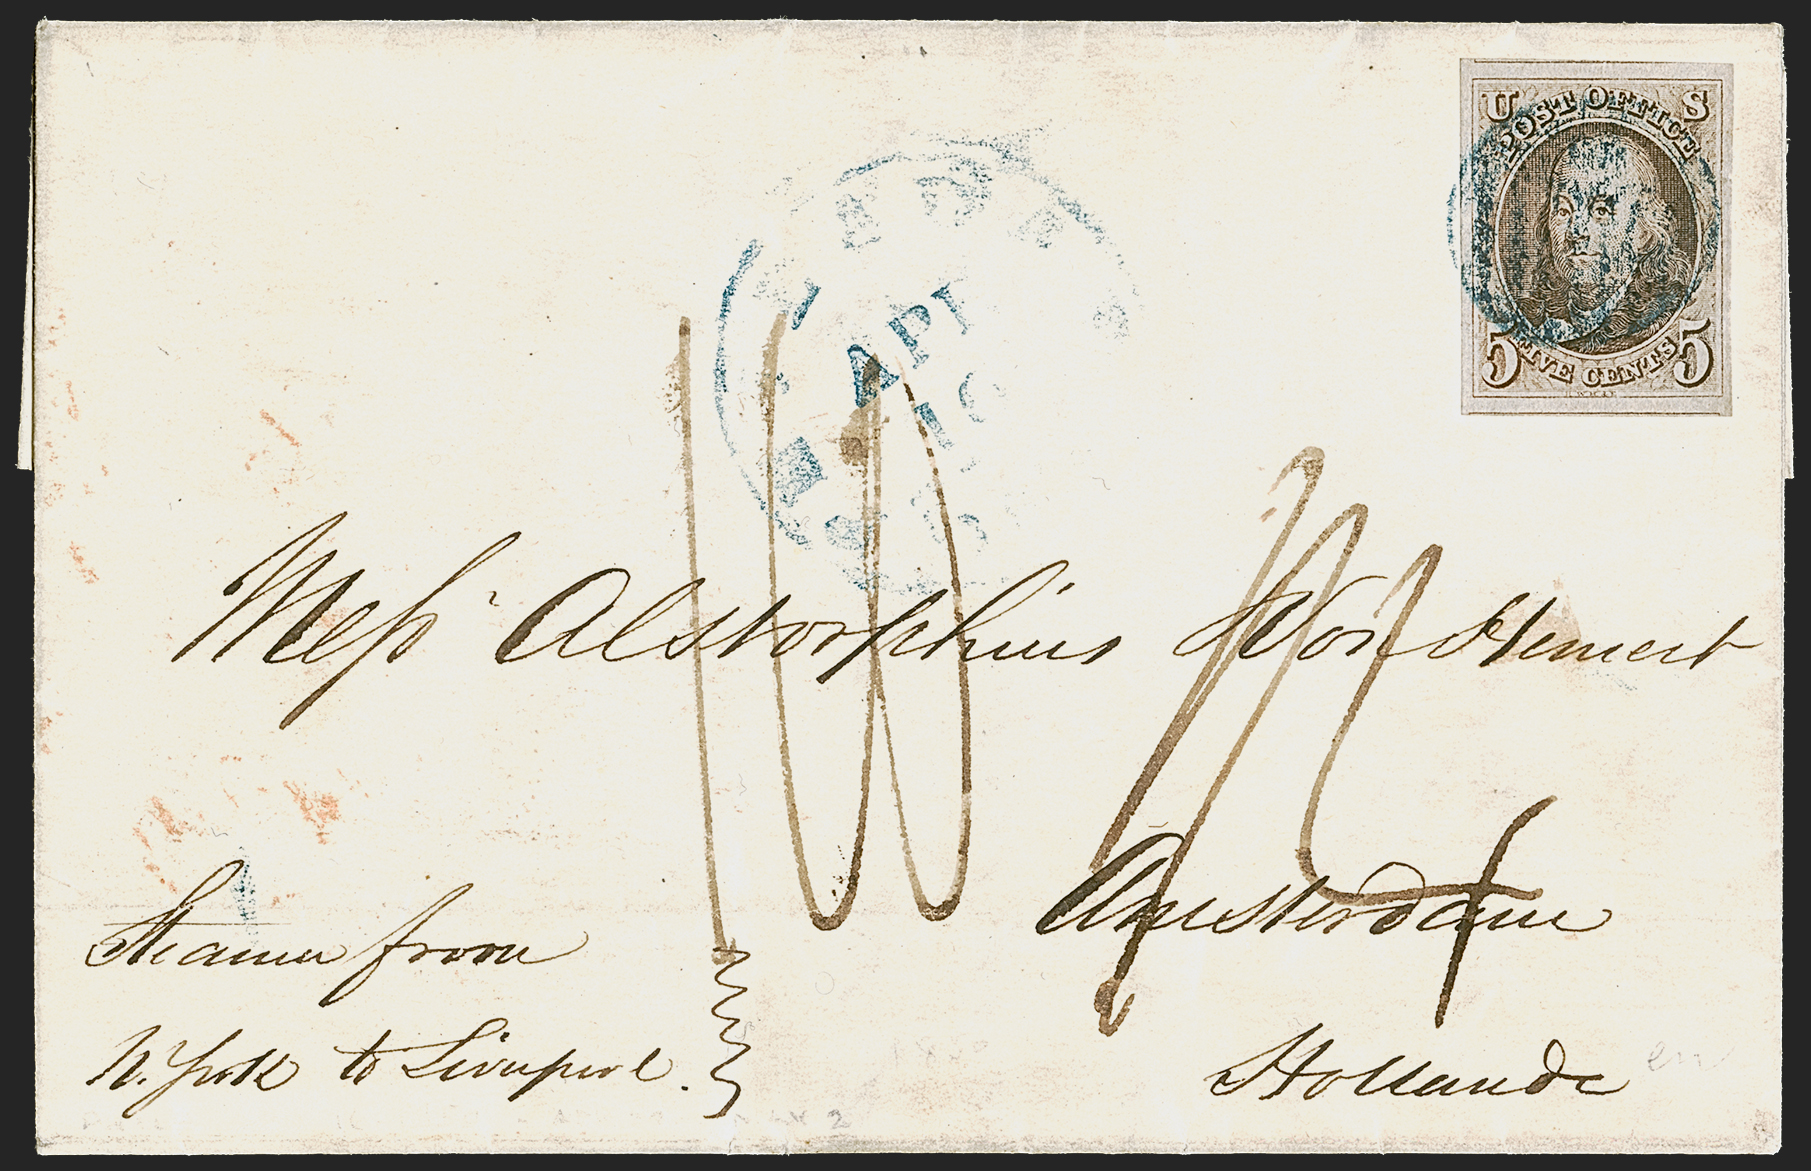 U S
POST OFFICE
5 FIVE CENTS 5
APR
Messrs Alstorphius Von Hemert
Amsterdam
Hollande
Steamer from
N. York to Liverpool.